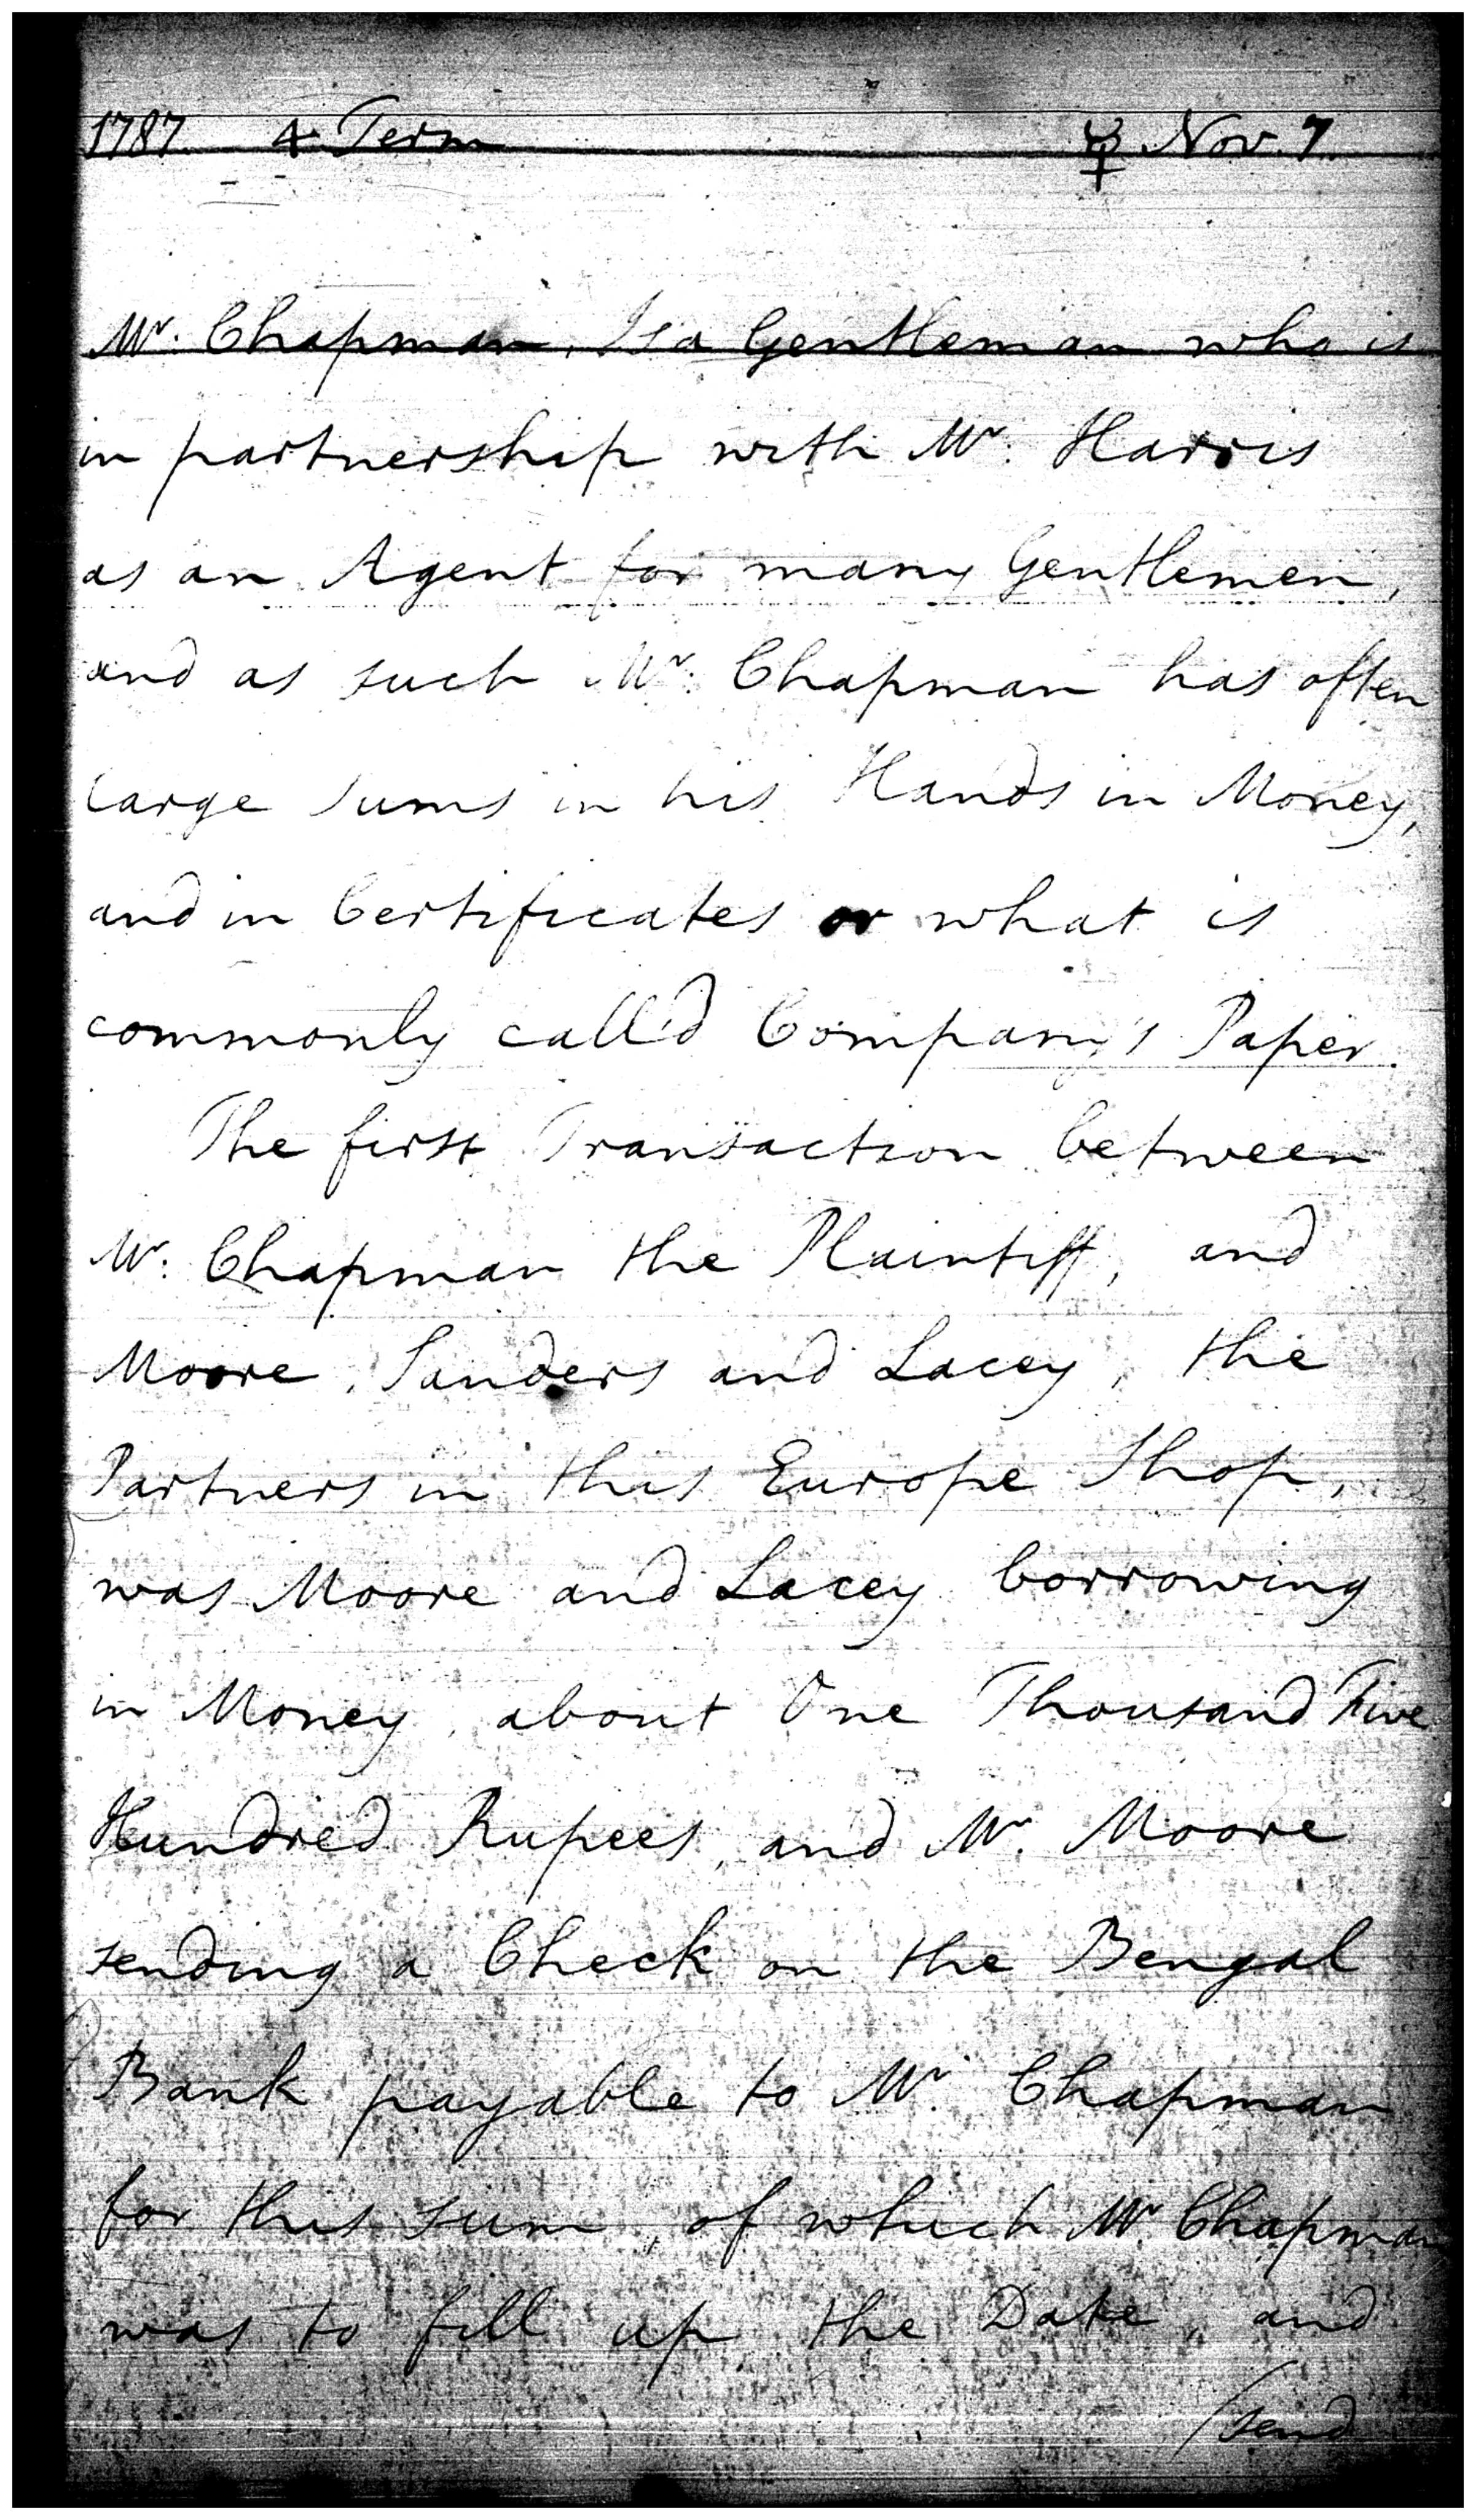 1787. 4 Term ☿ Nov. 7.
Mr. Chapman, Is a Gentleman who is
in partnership with Mr. Harris
as an Agent for many Gentlemen,
and as such Mr. Chapman has often
large Sums in his Hands in Money,
and in Certificates or what is
commonly call'd Company's Paper.
The first Transaction between
Mr. Chapman the Plaintiff, and
Moore, Sanders and Lacey, the
Partners in this Europe Shop,
was Moore and Lacey borrowing
in Money, about One Thousand Five
Hundred Rupees, and Mr. Moore
sending a Check on the Bengal
Bank payable to Mr. Chapman
for this sum, of which Mr. Chapman
was to fill up the Date, and
/send